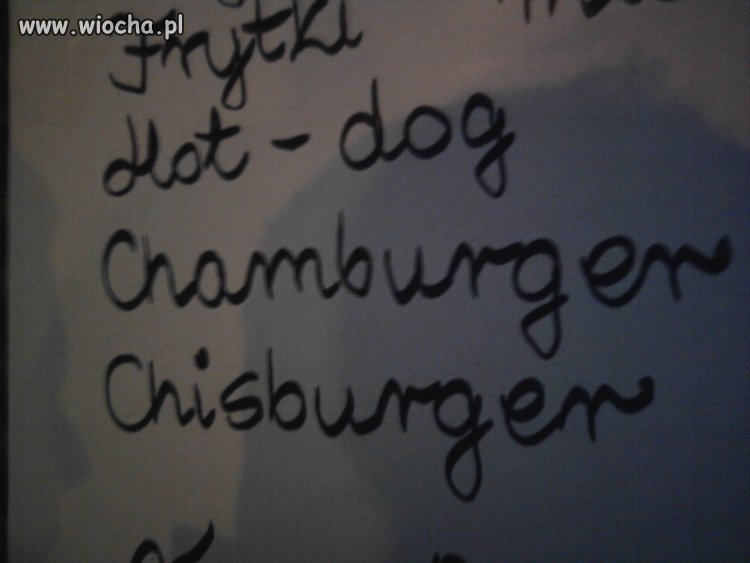 www.wiocha.pl
Frytki
Hot-dog
Chamburger
Chisburger